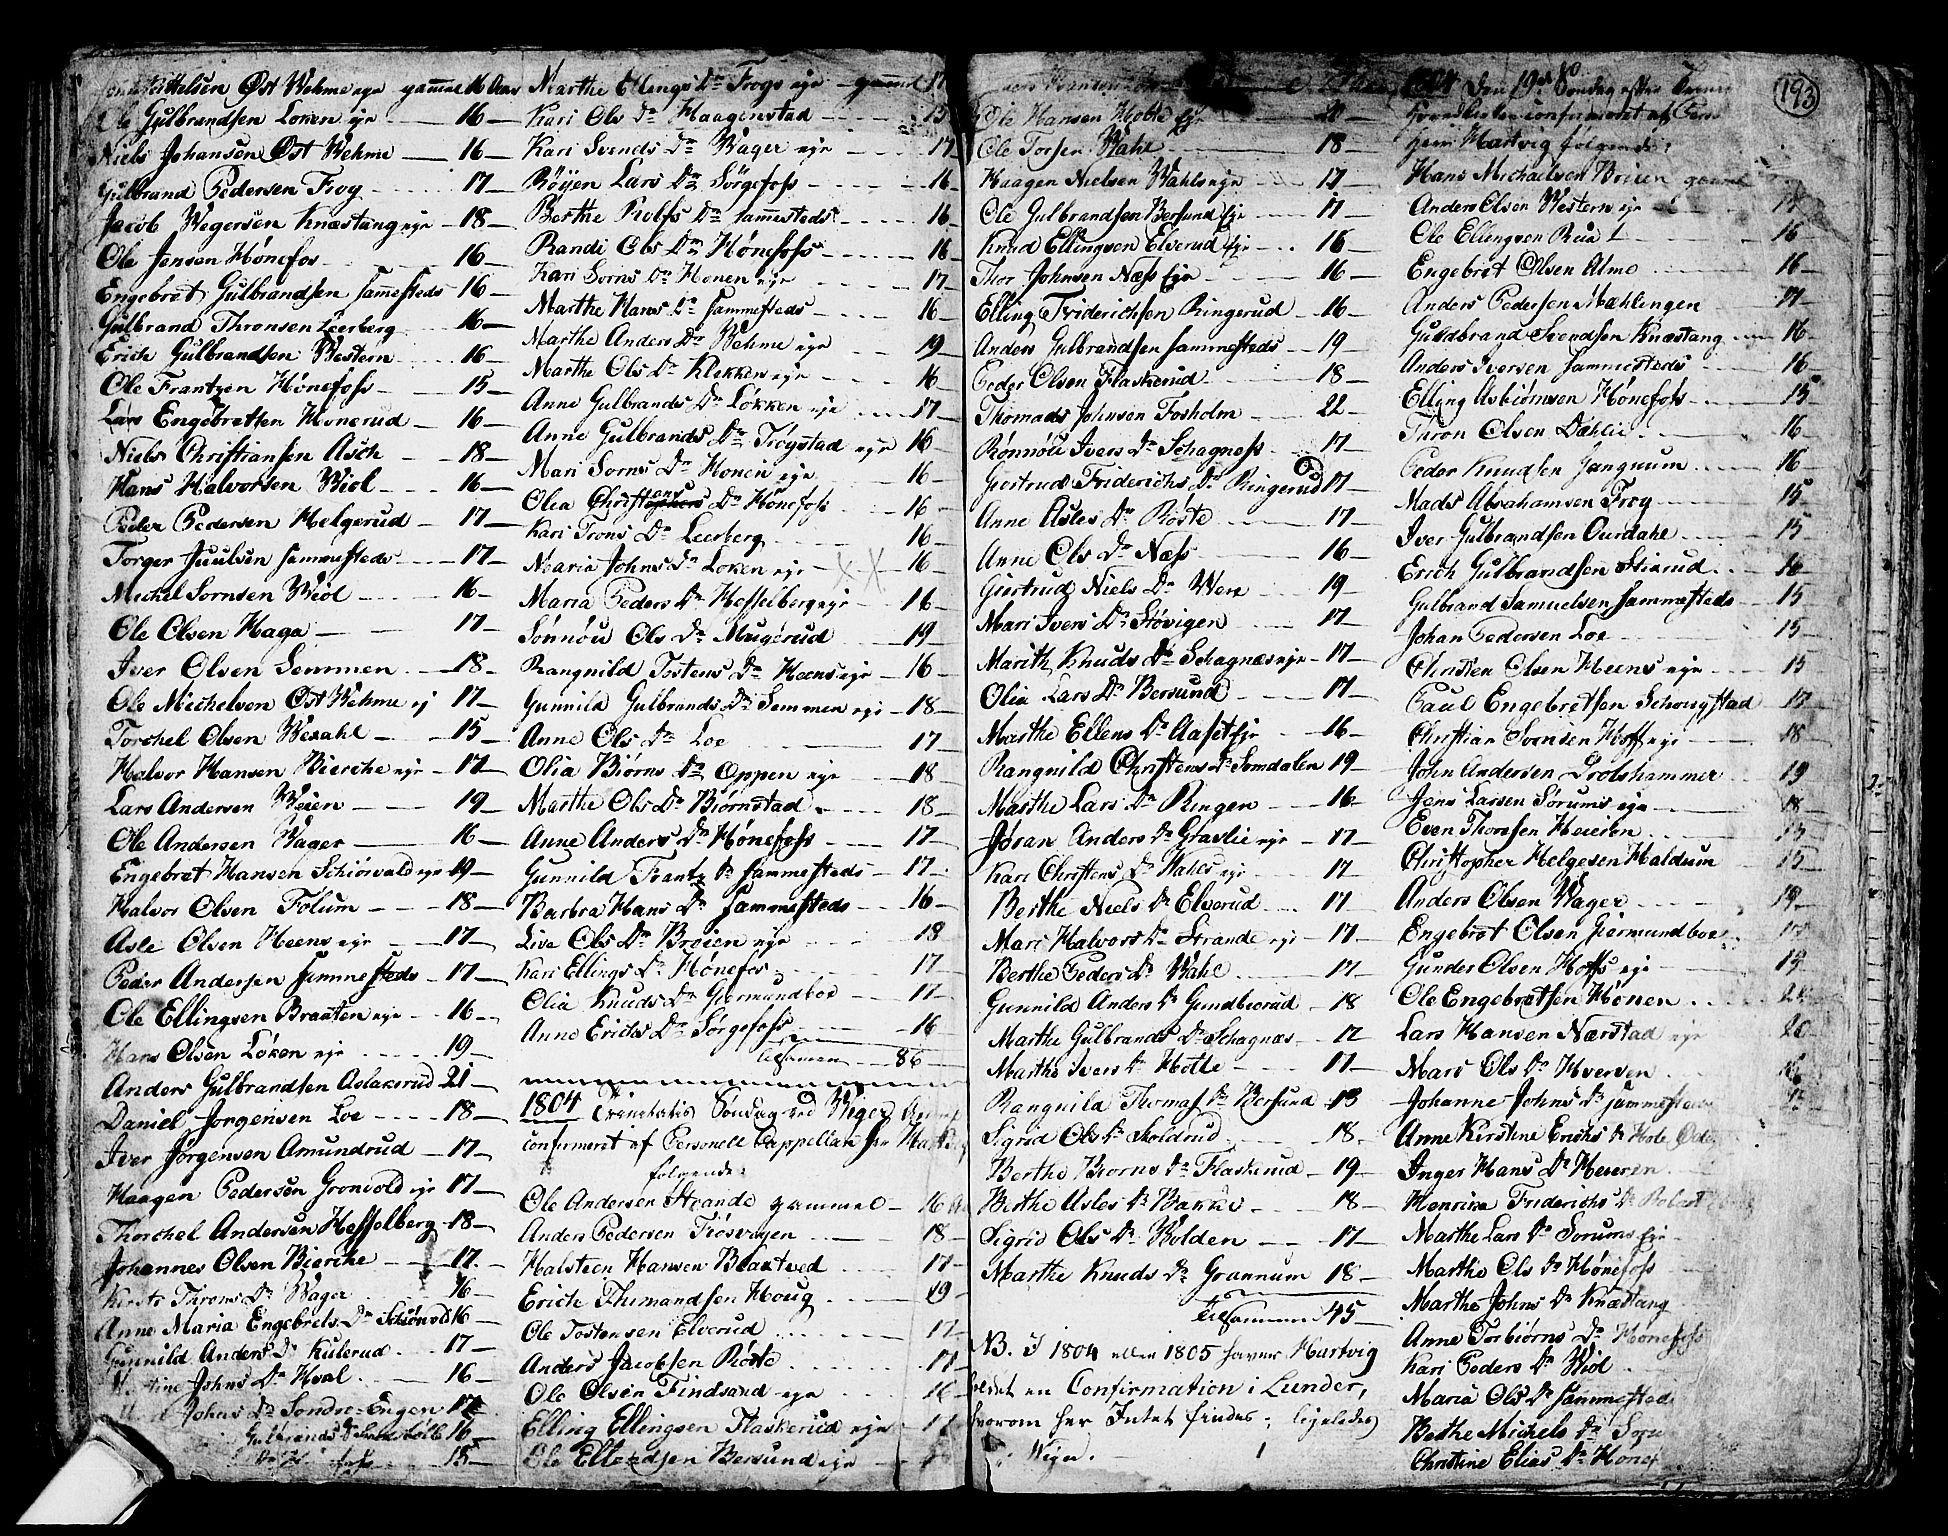 Kittelsen Øst Wehme eye gammel 16 Aar
Ole Gulbrandsen Loken eye 16
Niels Johansen Øst Wehme 16
Gulbrand Pedersen Frog 17
Jacob Wegersen Knæstang eye 18
Ole Jensen Hønefos 16
Engebret Gulbrandsen sammesteds 16
Gulbrand Thronsen Leerberg 16
Erich Gulbrandsen Western 16
Ole Frantzen Hønefoss 15
Lars Engebretsen Honerud 16
Niels Christiansen Asch 18
Hans Halvorsen Wiol 16
Peder Pedersen Helgerud 17
Torger Juulsen sammesteds 17
Michel Sornsen Wiol 16
Ole Olsen Haga 17
Iver Olsen Semmen 18
Ole Michelsen Øst Wehme ej 17
Torchel Olsen Wesahl 15
Halvor Hansen Bierche eye 17
Lars Andersen Weien 19
Ole Andersen Wager 16
Engebret Hansen Schiørvald eye 19
Halvor Olsen Folum 18
Asle Olsen Heens eye 17
Peder Andersen sammesteds 17
Ole Ellingsen Braaten eye 16
Hans Olsen Løken eye 19
Anders Gulbrandsen Aslaksrud 21
Daniel Jorgensen Loe 18
Iver Jørgensen Amundrud 17
Haagen Pedersen Gronvold eye 17
Thorchel Andersen Hesselberg 18
Johannes Olsen Bierche 17
Kirsti Throns Dr Wager 16
Anne Maria Engebrets Dr Schiørvold 16
Gunnild Anders Dr Kulerud 17
Johns Dr Hval 16
Johns Dr Søndre Engen 17
Gulbrands Dr 16
15
Marthe Ellings Dr Frogs eye gammel 17
Kari Ols Dr Haagenstad 15
Kari Svends Dr Wager eye 17
Røyen Lars Dr Sørgefoss 16
Berthe Rolfs Dr sammesteds 16
Randi Ols Dr Hønefoss 16
Kari Sorns Dr Honen eye 17
Marthe Hans Dr sammesteds 16
Marthe Anders Dr Wehme eye 19
Marthe Ols Dr Klekken eye 16
Anne Gulbrands Dr Løkken eye 17
Anne Gulbrands Dr Trøgstad eye 16
Mari Sorns Dr Honen eye 16
Olia Christians Dr Hønefoss 16
Kari Trons Dr Leerberg 16
Maria Johns Dr Loken eye 16
Maria Peders Dr Hesselberg eye 16
Sønnøu Ols Dr Maugerud 19
Rangnild Tostens Dr Heens eye 16
Gunnild Gulbrands Dr Semmen eye 18
Anne Ols Dr Loe 17
Olia Biørns Dr Oppen eye 18
Marthe Ols Dr Biørnstad 18
Anne Anders Dr Hønefoss 17
Gunnild Frantz Dr sammesteds 17
Barbra Hans Dr sammesteds 16
Live Ols Dr Brøien eye 18
Kari Ellings Dr Hønefos 17
Olia Knuds Dr Giermundboe 17
Anne Erichs Dr Sørgefoss 16
tilsamen 86
1804 Trinitatis Søndag ved Wiger
confirmeret af Personell Cappellan Hr Hartvig
følgende:
Ole Andersen Strande gammel 16
Anders Pedersen Trøsvogen 18
Halsteen Hansen Blaxtved 17
Erich Thimandsen Houg 19
Ole Tostensen Elverud 17
Anders Jacobsen Røste 17
Ole Olsen Findsand eye 16
Elling Ellingsen Flaskerud eye 17
Ole Bersund eye
Ole Hansen Hotte eye 20
Ole Torsen Wahl 18
Haagen Nielsen Wahls eye 17
Ole Gulbrandsen Bersund eye 17
Knud Ellingsen Elverud eye 16
Thor Johnsen Næss eye 16
Elling Friderichsen Ringerud 16
Anders Gulbrandsen sammesteds 19
Peder Olsen Flaskerud 18
Thomads Johnsen Fosholm 22
Rønnøu Ivers Dr Schagness 17
Giertrud Friderichs Dr Ringerud 17
Anne Asles Dr Røste 17
Anne Ols Dr Næss 16
Giertrud Niels Dr Were 19
Mari Ivers Dr Støvigen 17
Marith Knuds Dr Schagnæs eye 17
Olia Lars Dr Bersund 17
Marthe Ellens Dr Aaset eye 16
Rangnild Christens Dr Somdalen 19
Marthe Lars Dr Ringen 16
Jøran Anders Dr Gravlie eye 17
Kari Christens Dr Wahls eye 17
Berthe Niels Dr Elverud 17
Mari Halvors Dr Strande eye 17
Berthe Peders Dr Wahl 17
Gunnild Anders Dr Gundbiorud 18
Marthe Gulbrands Dr Schagnæs 17
Marthe Ivers Dr Hotte 17
Rangnild Thomas Dr Bersund 18
Sigrid Ols Dr Skoldrud 18
Berthe Biorns Dr Flaskerud 19
Berthe Asles Dr Bakke 18
Sigrid Ols Dr Wolden 17
Marthe Knuds Dr Grannum 18
Tilsammen 45
NB. I 1804 eller 1805 haver Hartvig
holdt en Confirmation i Lunder,
hvorom her Intet findes; ligeledes
i Wiger.
1804 Den 19de Søndag efter
confirmeret af
Herr Hartvig følgende:
Hans Michaelsen Brøien gammel
Anders Olsen Western eye 17
Ole Ellingsen Rua 16
Engebret Olsen Almo 16
Anders Pedersen Mæhlingen 17
Guldbrand Svendsen Knæstang 16
Anders Iversen sammesteds 16
Elling Asbiørnsen Hønefoss 15
Thron Olsen Dæhlie 16
Peder Knudsen Jangnum 16
Mads Abrahamsen Frog 15
Iver Gulbrandsen Ourdahl 15
Erich Gulbrandsen Stixrud 16
Gulbrand Samuelsen sammesteds 15
Johan Pedersen Loe 15
Christen Olsen Heens eye 15
Paul Engebretsen Schougstad 17
Christian Svensen Hoff eye 18
John Andersen Drolshammer 19
Jens Larsen Sørums eye 18
Even Thoresen Heieren 15
Christopher Helgesen Haldum 15
Anders Olsen Wager 19
Engebret Olsen Giermundboe
Gunder Olsen Hoffs eye 19
Ole Engebretsen Hønen
Lars Hansen Nærstad eye 20
Mari Ols Dr Hversen 16
Johanne Johns Dr sammesteds
Anne Kirstine Erichs Dr Hole
Inger Hans Dr Heieren
Henrica Friderichs Dr
Marthe Lars Dr Sorums eye
Marthe Ols Dr Hønefoss
Marthe Johns Dr Knæstang
Anne Torbiørns Dr Honefoss
Kari Peders Dr Wiol
Maria Ols Dr sammesteds
Berthe Michels Dr
Christine Elias Dr Honef
193